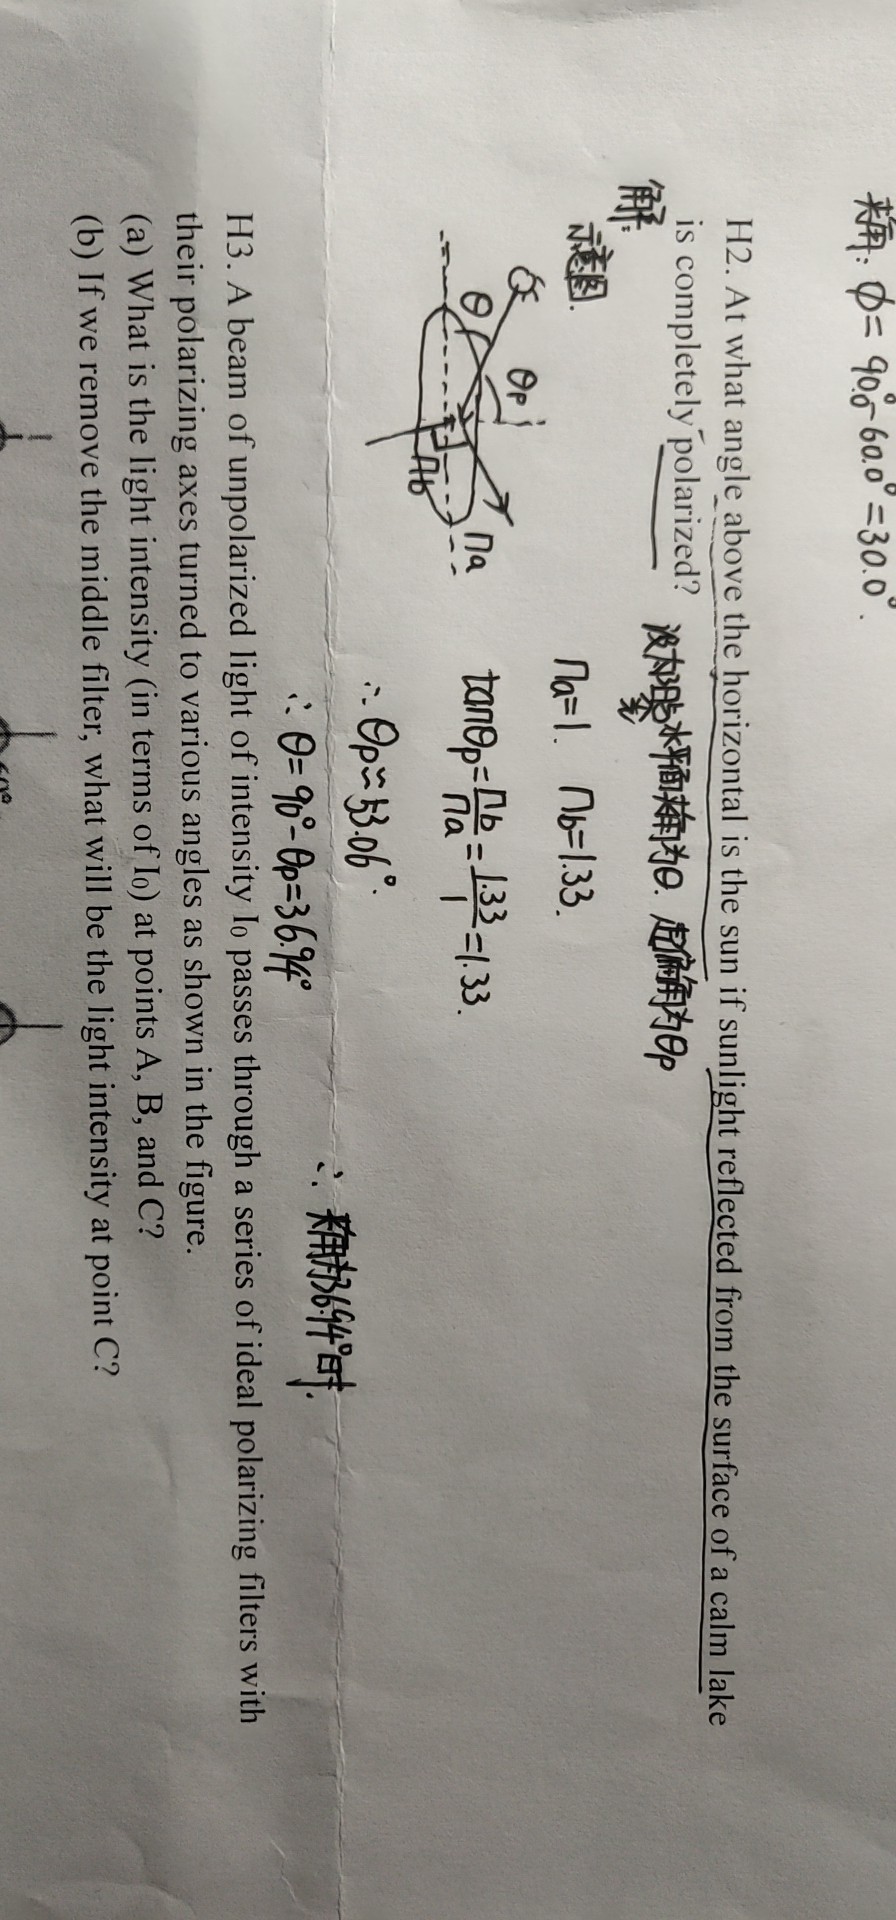 夹角: ϕ= 90.0°-60.0°=30.0°.
H2. At what angle above the horizontal is the sun if sunlight reflected from the surface of a calm lake
is completely polarized?
设太阳与水平面夹角为θ. 起偏角为θp
光
解:
示意图.
na=1. nb=1.33.
θp
θ
na
nb
tanθp=nb/na=1.33/1=1.33.
∴ θp≈53.06°.
∴ θ=90°-θp=36.94°
∴ 夹角为36.94°时.
H3. A beam of unpolarized light of intensity I₀ passes through a series of ideal polarizing filters with
their polarizing axes turned to various angles as shown in the figure.
(a) What is the light intensity (in terms of I₀) at points A, B, and C?
(b) If we remove the middle filter, what will be the light intensity at point C?